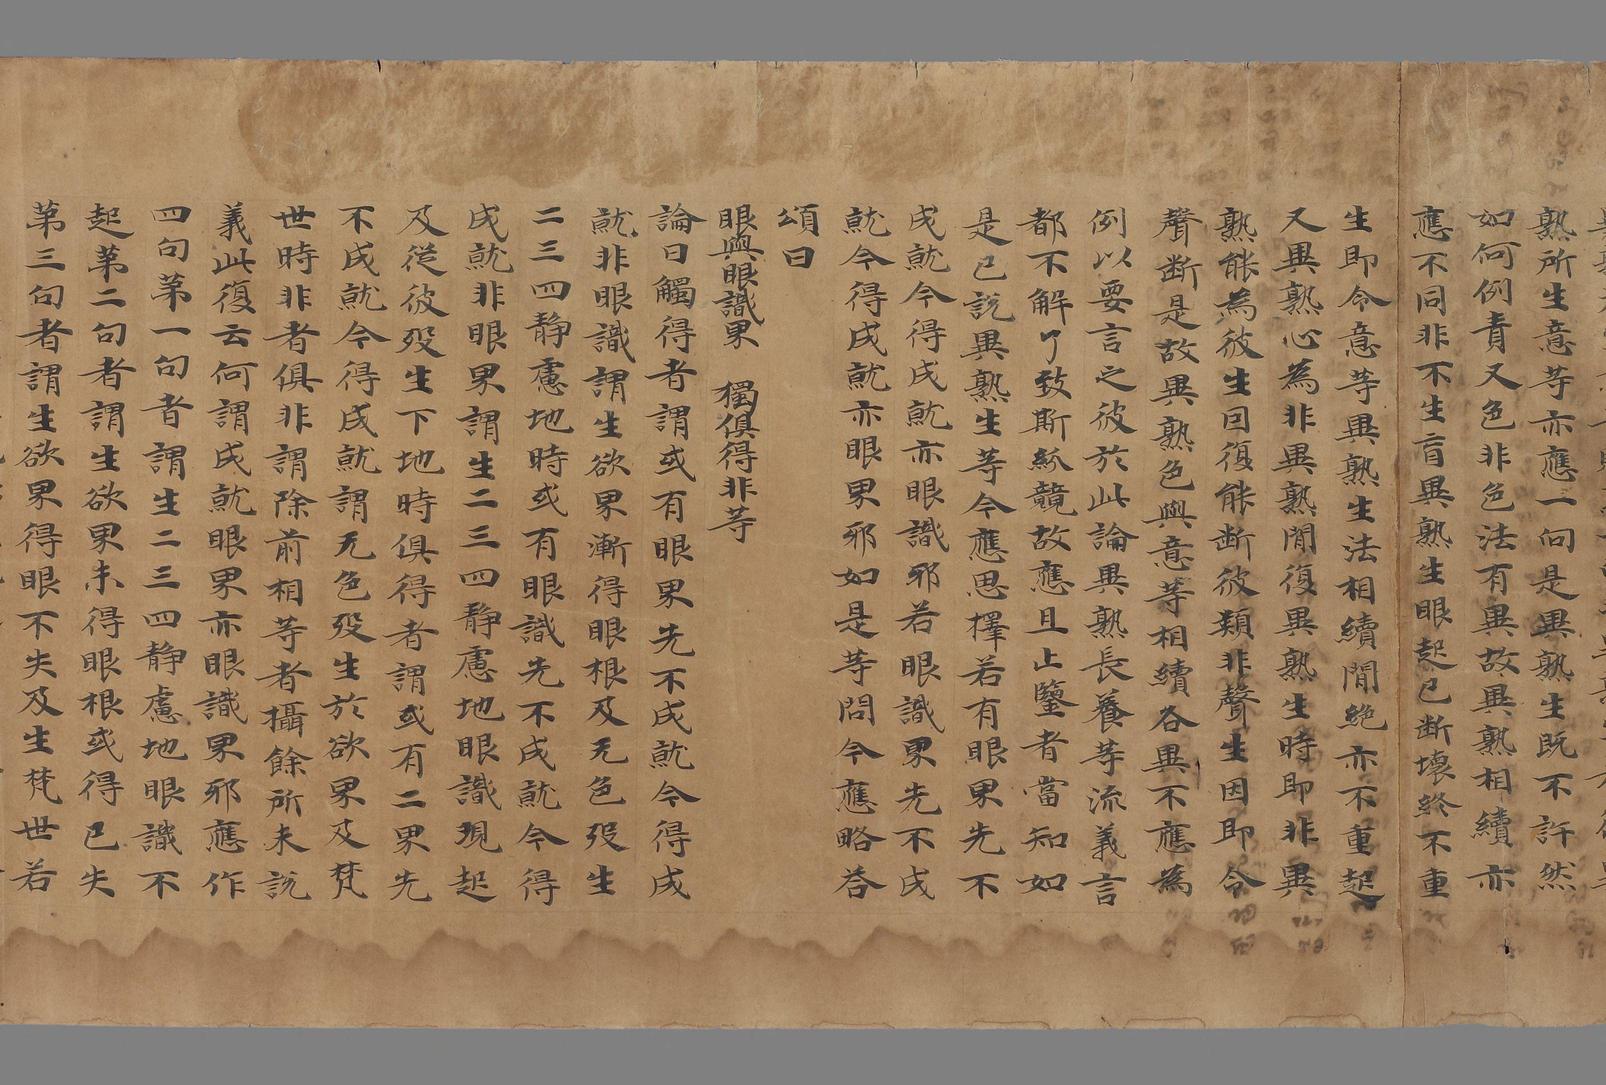 熟所生意等亦應一向是異熟生既不許然
如何例責又色非色法有異故異熟相續亦
應不同非不生盲異熟生眼起已斷壞終不重
生即令意等異熟生法相續間絶亦不重起
又異熟心為非異熟間復異熟生時即非異
熟能為彼生因復能断彼類非聲生因即令
聲断是故異熟色與意等相續各異不應為
例以要言之彼於此論異熟長養等流義言
都不解了致斯紛競故應且止鑒者當知如
是已說異熟生等今應思擇若有眼界先不
成就今得成就亦眼識邪若眼識界先不成
就今得成就亦眼界邪如是等問今應略荅
頌曰
眼與眼識界　獨俱得非等
論曰獨得者謂或有眼界先不成就今得成
就非眼識謂生欲界漸得眼根及无色歿生
二三四静慮地時或有眼識先不成就今得
成就非眼界謂生二三四静慮地眼識現起
及從彼歿生下地時俱得者謂或有二界先
不成就今得成就謂无色歿生於欲界及梵
世時非者俱非謂除前相等者攝餘所未說
義此復云何謂成就眼界亦眼識界邪應作
四句第一句者謂生二三四静慮地眼識不
起第二句者謂生欲界未得眼根或得已失
第三句者謂生欲界得眼不失及生梵世若